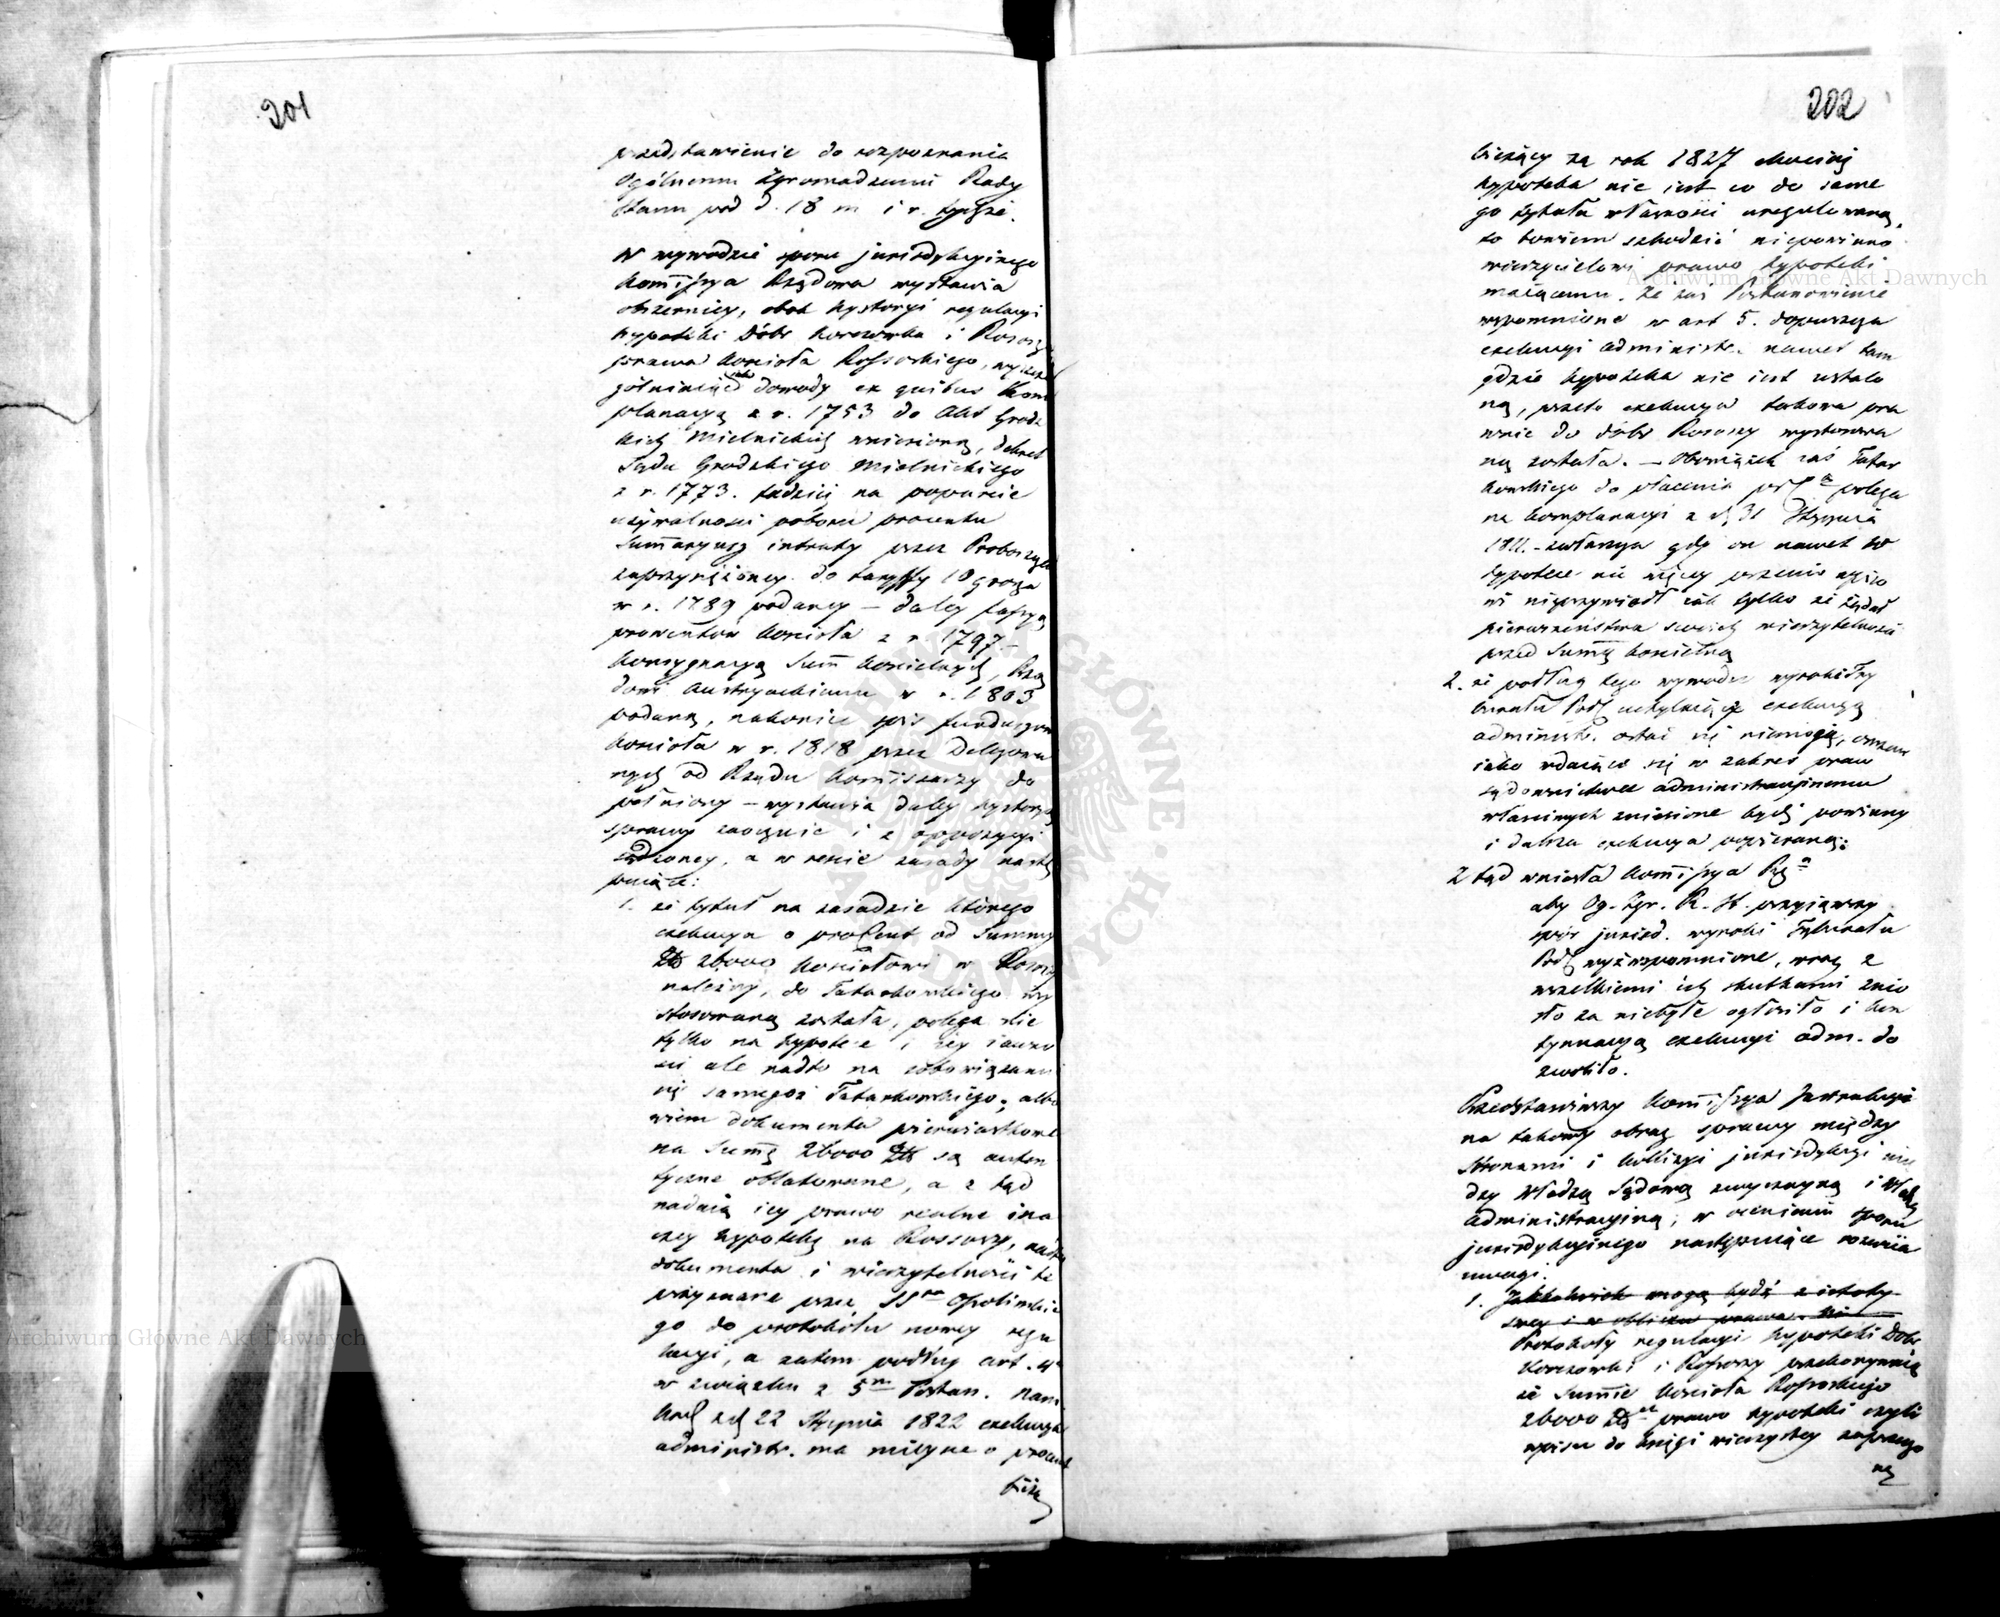 201
przedstawienie do rozpoznania
Ogólnemu Zgromadzeniu Rady
Stanu pod d. 18 m i r. tychże.
W wywodzie sporu jurisdykcyinego
Kommissya Rządowa wystawia
obszerniey, obok hystoryi regulacyi
hypoteki Dóbr Korczówka i Rososz
prawa kościoła Rossoskiego,
dowody ex quibus Kom
planacyą z r. 1753 do Akt Grodz
kich Mielnickich wniesioną, dekret
Sądu Grodzkiego Mielnickiego
z r. 1773. tudzież na poparcie
używalności poboru procentu
Summaryusz intraty przez Proboszcza
zaprzysiężoney do taryffy 10 grosza
w r. 1789 podaney – daley fassyą
prowentów kościoła z r. 1797 –
konsygnacyą Summ kościelnych, Rzą
dowi Austryackiemu w r. 1803
podaną, nakoniec spis funduszów
kościoła w r. 1818 przez Delegowa
nych od Rządu Kommissarzy do
pełniony – wystawia daley hystoryą
sprawy zaocznie i z oppozycyi
sądzoney, a w resie zasady nastę
puiące:
1. że tytuł na zasadzie którego
exekucya o procent od Summy
26000 kościołowi w Rososzy
należny, do Tatarkowskiego wy
stosowaną została, polega nie
tylko na hypotece i iey iawno
ści ale nadto na zobowiązaniu
się samegoż Tatarkowskiego; albo
wiem dokumenta pierwiastkowe
na Summę 26000 Zł są auten
tyczne oblatowane, a z tąd
nadaią iey prawo realne ina
czey hypotekę na Rossoszy, nadto
dokumenta i wierzytelność ta
przyznane przez SSrów Opolińskie
go do protokółu nowey regu
lacyi, a zatem podług art. 4o
w związku z 5m Postan. Nami
z d. 22 Stycznia 1822 exekucya
administr. ma mieysce o procent
bieżą
202
bieżący za rok 1827 chociaż
hypoteka nie iest co do same
go tytułu własności uregulowaną,
to bowiem szkodzić niepowinno
wierzycielowi prawo hypoteki
maiącemu. że zaś Postanowienie
wspomnione w art 5. dopuszcza
exekucyi administr. nawet tam
gdzie hypoteka nie iest ustalo
ną, przeto exekucya takowa pra
wnie do dóbr Rososzy wystosowa
ną została. – Obowiązek zaś Tatar
kowskiego do płacenia polega
na komplanacyi z d. 31 Stycznia
1811. – zwłaszcza gdy on nawet w
hypotece nic więcey przeciw wpiso
wi nieprzywiódł iak tylko że żądał
pierwszeństwa swoich wierzytelności
przed Summą kościelną
2. że podług tego wywodu wyrok Try
bunału Podl uchylaiące exekucyą
administr. ostać się niemogą, owszem
iako wdaiące się w zakres praw
sądownictwu administracyinemu
właściwych zniesione bydź powinny
i dalsza exekucya popieraną:
Z tąd wniosła Kommissya Rzą
aby Og. Zgr. R. St. przyiąwszy
spór jurisd. wyroki Trybunału
Podl wyżwspomnione, wraz z
wszelkiemi ich skutkami znio
sło za niebyłe ogłosiło i kon
tynuacyą exekucyi adm. do
zwoliło.
Przedstawiwszy Kommissya Instrukcyi
na takowy obraz sprawy między
Stronami i kollizyi jurisdykcyi mię
dzy Władzą Sądową zwyczayną i Wład
administracyiną; w ocenieniu sporu
jurisdykcyinego następuiące rozwiia
uwagi.
1. Jakkolwiek mogą bydź z istoty
swey i w obliczu prawa
Protokóły regulacyi hypoteki Dóbr
Korczówki i Rossoszy przekonywaią
że Summie kościoła Rossoskiego
26000 prawo hypoteki czyli
wpisu do księgi wieczystey zaprzeczo
ne